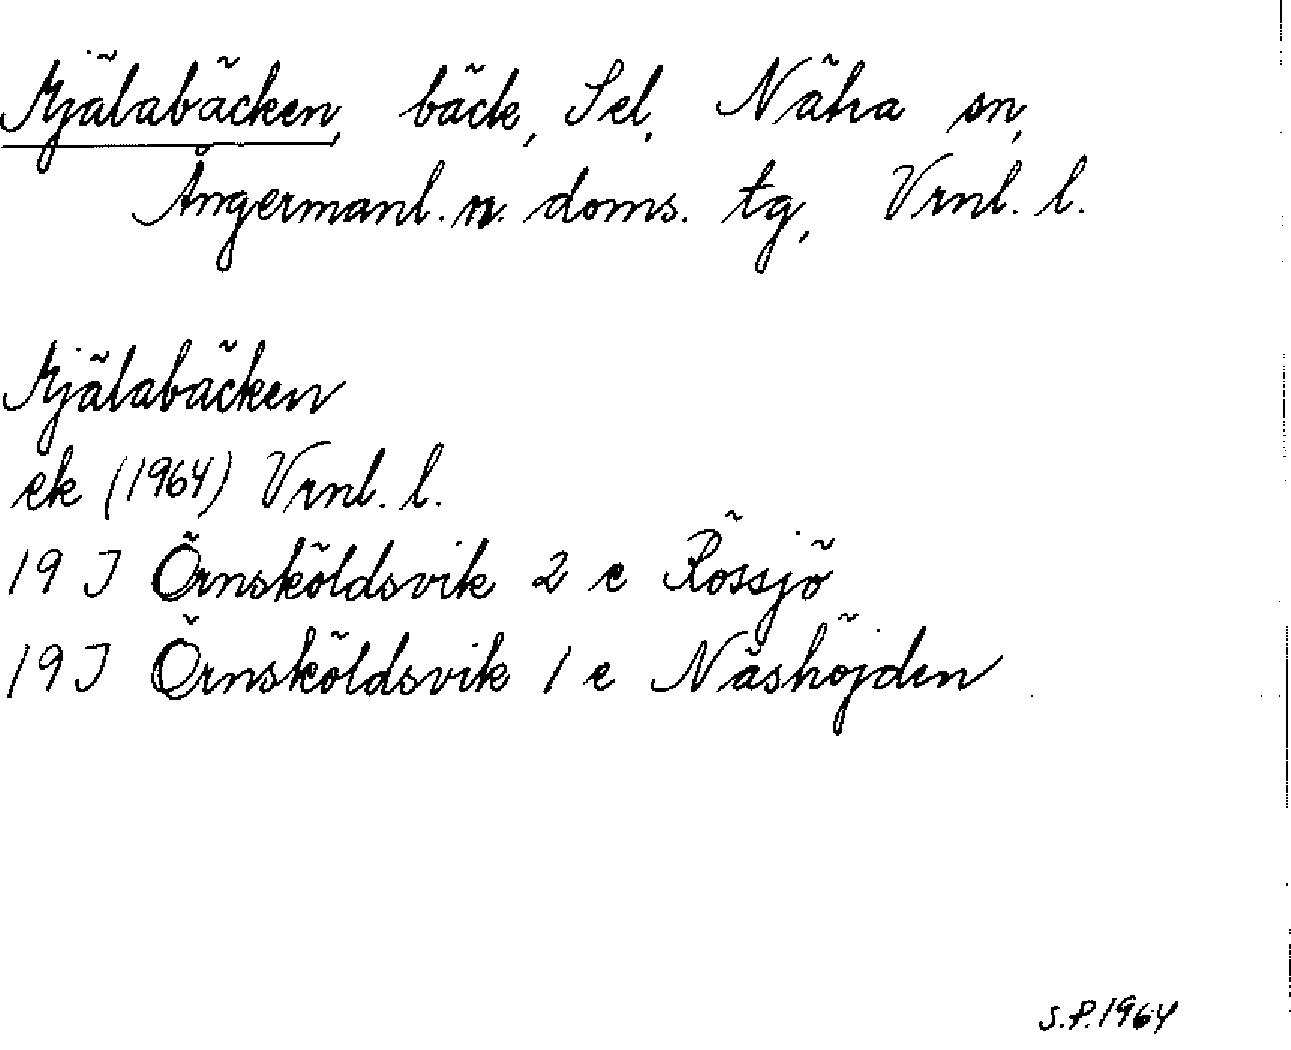 Mjälabäcken, bäck, Sel, Nätra sn,
Ångermanl. n. doms. tg, Vrnl. l.
Mjälabäcken
ek (1964) Vrnl. l.
19 J Örnsköldsvik 2 e Rössjö
19 J Örnsköldsvik 1 e Näshöjden
S.P. 1964